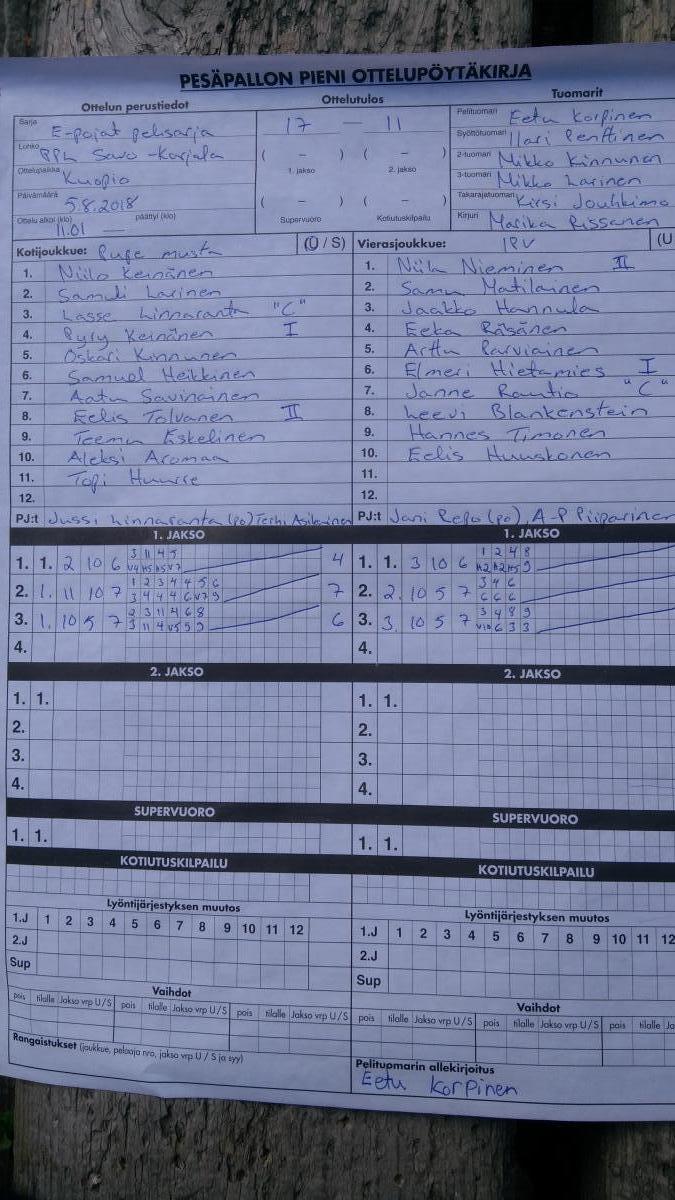 PESÄPALLON PIENI OTTELUPÖYTÄKIRJA
Ottelun perustiedot
Ottelutulos
Tuomarit
Sarja E-pojat pelisarja
Lohko PPL Savo-Karjala
Ottelupaikka Kuopio
Päivämäärä 5.8.2018
Ottelu alkoi (klo) 11.01 päättyi (klo) —
17 — 11
( – ) ( – )
1. jakso 2. jakso
( – ) ( – )
Supervuoro Kotiutuskilpailu
Pelituomari Eetu Korpinen
Syöttötuomari Ilari Penttinen
2-tuomari Mikko Kinnunen
3-tuomari Mikko Larinen
Takarajatuomari Kirsi Jouhkimo
Kirjuri Marika Rissanen
Kotijoukkue: Pupe musta (U / S)
1. Niilo Keinänen
2. Samuli Larinen
3. Lasse Linnaranta "C"
4. Pyry Keinänen I
5. Oskari Kinnunen
6. Samuel Heikkinen
7. Aatu Savinainen
8. Eelis Tolvanen II
9. Teemu Eskelinen
10. Aleksi Aromaa
11. Topi Huurre
12.
PJ:t Jussi Linnaranta (po) Terhi
Vierasjoukkue: IPV (U
1. Niila Nieminen II
2. Samu Matilainen
3. Jaakko Hannula
4. Eeka Räsänen
5. Arttu Parviainen
6. Elmeri Hietamies I
7. Janne Rautio "C"
8. Leevi Blankenstein
9. Hannes Timonen
10. Eelis Huuskonen
11.
12.
PJ:t Jani Repo (po), A-P Piiparinen
1. JAKSO
1. 1. 2 10 6 3 11 4 5 4
2. 1. 11 10 7 1 2 3 4 4 5 6 7
3. 1. 10 5 7 2 3 11 4 6 8 6
3 11 4 V5 5 9
4.
2. JAKSO
1. 1.
2.
3.
4.
SUPERVUORO
1. 1.
KOTIUTUSKILPAILU
Lyöntijärjestyksen muutos
1.J 1 2 3 4 5 6 7 8 9 10 11 12
2.J
Sup
Vaihdot
pois tilalle Jakso vrp U/S pois tilalle Jakso vrp U/S pois tilalle Jakso vrp U/S
Rangaistukset (joukkue, pelaaja nro, jakso vrp U / S ja syy)
1. JAKSO
1. 1. 3 10 6 1 2 4 8
2. 2. 10 5 7 3 4 6
6 6 6
3. 3. 10 5 7 3 4 8 9
V10 6 3 3
4.
2. JAKSO
1. 1.
2.
3.
4.
SUPERVUORO
1. 1.
KOTIUTUSKILPAILU
Lyöntijärjestyksen muutos
1.J 1 2 3 4 5 6 7 8 9 10 11 12
2.J
Sup
Vaihdot
pois tilalle Jakso vrp U/S pois tilalle Jakso vrp U/S pois tilalle Ja
Pelituomarin allekirjoitus
Eetu Korpinen